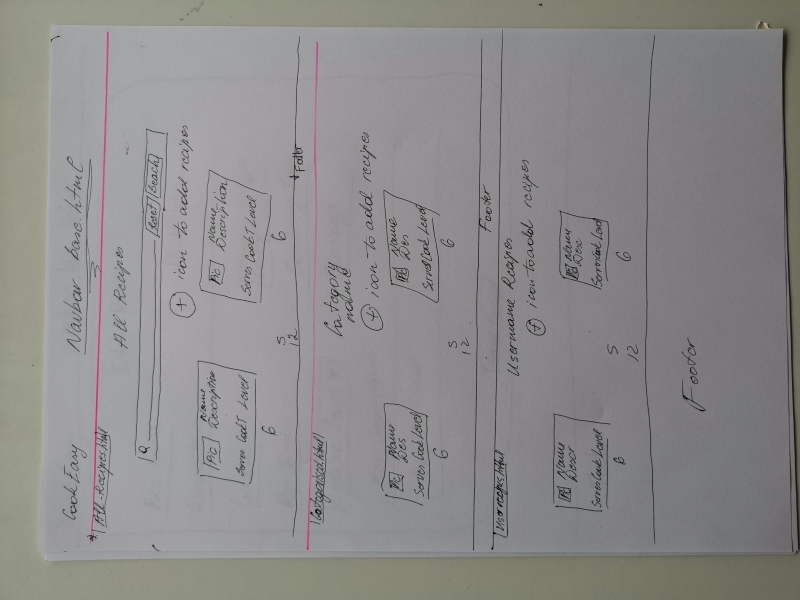 Cook Easy Navbar base.html
All-Recipes.html
All Recipes
Q Reset Seach
+ icon to add recipes
Pic Name
Description
Serves CookT Level
6
Pic Name
Description
Serves CookT Level
6
S
12
Footer
Categorised.html
Category
name
+ icon to add recipes
Pic Name
Des
Serves Cook Level
6
Pic Name
Des
Serves Cook Level
6
S
12
Footer
Userrecipes.html
Username Recipes
+ icon to add recipes
Pic Name
Descr
Serves Cook Level
6
Pic Name
Desc
Serves Cook Level
6
S
12
Footer